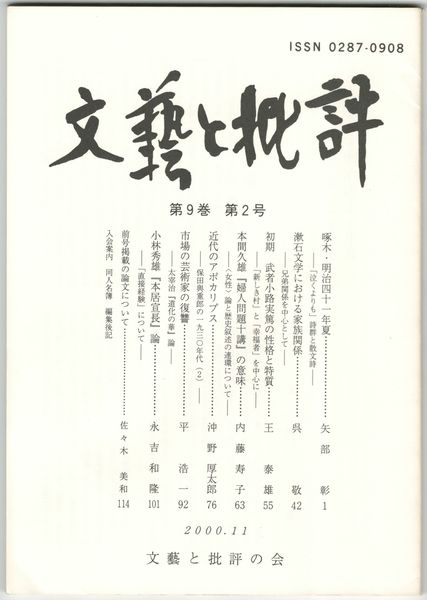 ISSN 0287-0908
文藝と批評
第9巻 第2号
啄木・明治四十一年夏……………矢部 彰 1
――「泣くよりも」詩群と散文詩――
漱石文学における家族関係……………呉 敬 42
――兄弟関係を中心として――
初期 武者小路実篤の性格と特質……………王 泰雄 55
――「新しき村」と「幸福者」を中心に――
本間久雄『婦人問題十講』の意味……………内藤寿子 63
――〈女性〉論と歴史叙述の連環について――
近代のアポカリプス……………沖野厚太郎 76
――保田與重郎の一九三〇年代(2)――
市場の芸術家の復讐……………平 浩一 92
――太宰治『道化の華』論――
小林秀雄『本居宣長』論……………永吉和隆 101
――「直接経験」について――
前号掲載の論文について……………佐々木美和 114
入会案内 同人名簿 編集後記
2000.11
文藝と批評の会